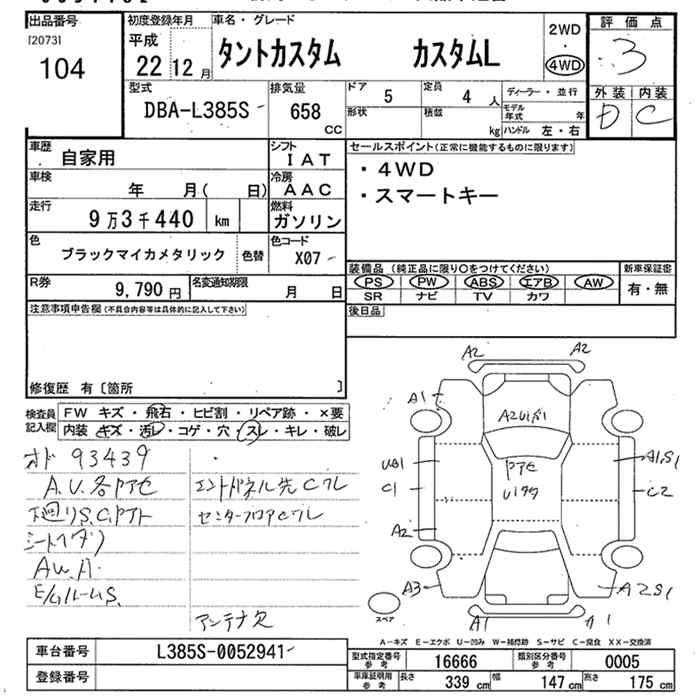 出品番号
[2073]
104
初度登録年月
平成
22 12 月
車名・グレード
タントカスタム カスタムL
2WD
・
4WD
評価点
3
外装 内装
D C
型式
DBA-L385S
排気量
658
CC
ドア
5
定員
4 人
形状
積載
kg
ディーラー・並行
モデル年式 年
ハンドル 左・右
車歴
自家用
シフト
IAT
車検
年 月( 日)
冷房
AAC
走行
9万3千440 km
燃料
ガソリン
色
ブラックマイカメタリック
色替
色コード
X07
R券
9,790 円
名変通知期限
月 日
セールスポイント(正常に機能するものに限ります)
・4WD
・スマートキー
装備品 (純正品に限り○をつけてください)
PS PW ABS エアB AW
SR ナビ TV カワ
新車保証書
有・無
後日品
注意事項申告欄(不具合内容等は具体的に記入して下さい)
修復歴 有〔箇所 〕
検査員
記入欄
FW キズ・飛石・ヒビ割・リペア跡・×要
内装 キズ・汚レ・コゲ・穴・スレ・キレ・破レ
オド 93439
A.U.各P
下廻りS.C.P
シート
E/GルームS.
エンドパネル先C
センターフロア
アンテナ欠
A2 A2
A1
A2U1S1
UB1
C1
A1S1
C2
A2
A3
A2S1
A1 A1
スペア
A-キズ E-エクボ U-凹み W-補修跡 S-サビ C-腐食 XX-交換済
車台番号
L385S-0052941
登録番号
型式指定番号
参考
16666
類別区分番号
参考
0005
車庫証明用
参考
長さ
339 cm
幅
147 cm
高さ
175 cm